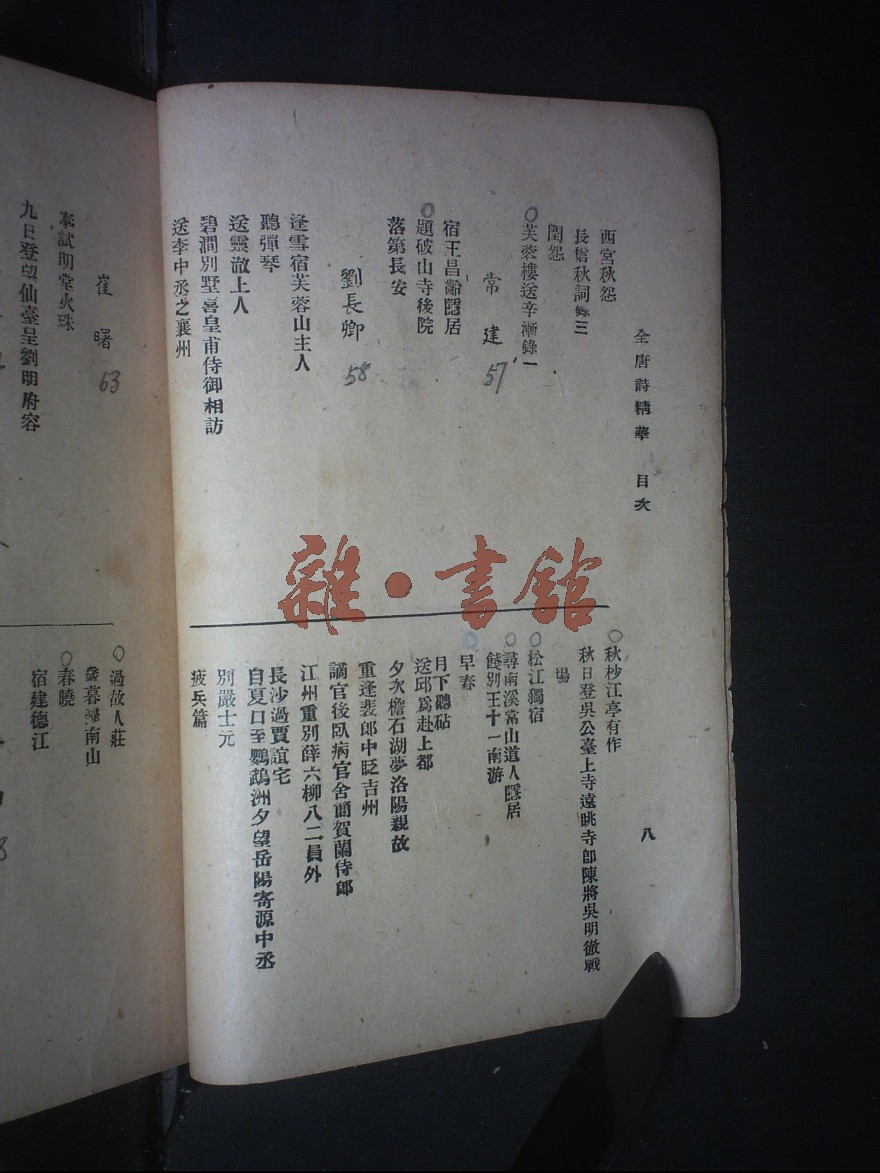 全唐詩精華 目次
八
西宮秋怨
長信秋詞錄三
閨怨
○芙蓉樓送辛漸錄一
常建 57
宿王昌齡隱居
○題破山寺後院
落第長安
劉長卿 58
逢雪宿芙蓉山主人
聽彈琴
送靈澈上人
碧澗別墅喜皇甫侍御相訪
送李中丞之襄州
○秋杪江亭有作
秋日登吳公臺上寺遠眺寺卽陳將吳明徹戰
場
○松江獨宿
○尋南溪常山道人隱居
餞別王十一南游
○早春
月下聽砧
送邱爲赴上都
夕次檐石湖夢洛陽親故
重逢裴郎中貶吉州
謫官後臥病官舍簡賀蘭侍郎
江州重別薛六柳八二員外
長沙過賈誼宅
自夏口至鸚鵡洲夕望岳陽寄源中丞
別嚴士元
疲兵篇
崔曙 63
奉試明堂火珠
九日登望仙臺呈劉明府容
○過故人莊
歲暮歸南山
○春曉
宿建德江
雜·書館